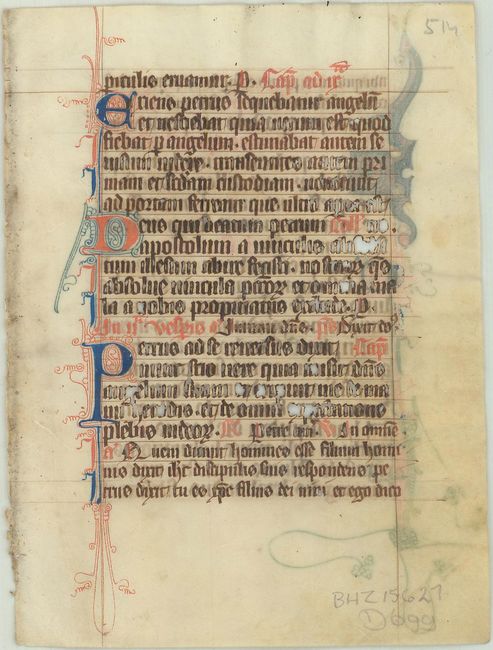 514
piculis eruamur. P. Cap ad
Exiens petrus sequebatur angelū
et nesciebat quia verum est quod
fiebat p angelum. estimabat autem se
visum videre. transeuntes autem pri
mam et scdam custodiam. venerunt
ad portam ferream que ultro aperta est
Deus qui beatum petrum
apostolum a vinculis
tum illesum abire fecisti. nostrorȝ qs
absolue vincula pctorȝ et omnia ma
la a nobis propiciatus exclude. P.
In ii vesperis a Iurauit dns. ps Dixit
Petrus ad se reuersus dixit. Cap
nunc scio vere quia misit dns
angelum suum et eripuit me de ma
nu herodis. et de omni expectatione
plebis iudeorȝ. Petre
a Quem dicunt homines esse filium homi
nis dixit ihc discipulis suis respondens pe
trus dixit. tu es xpc filius dei viui et ego dico
BHZ15627
D699